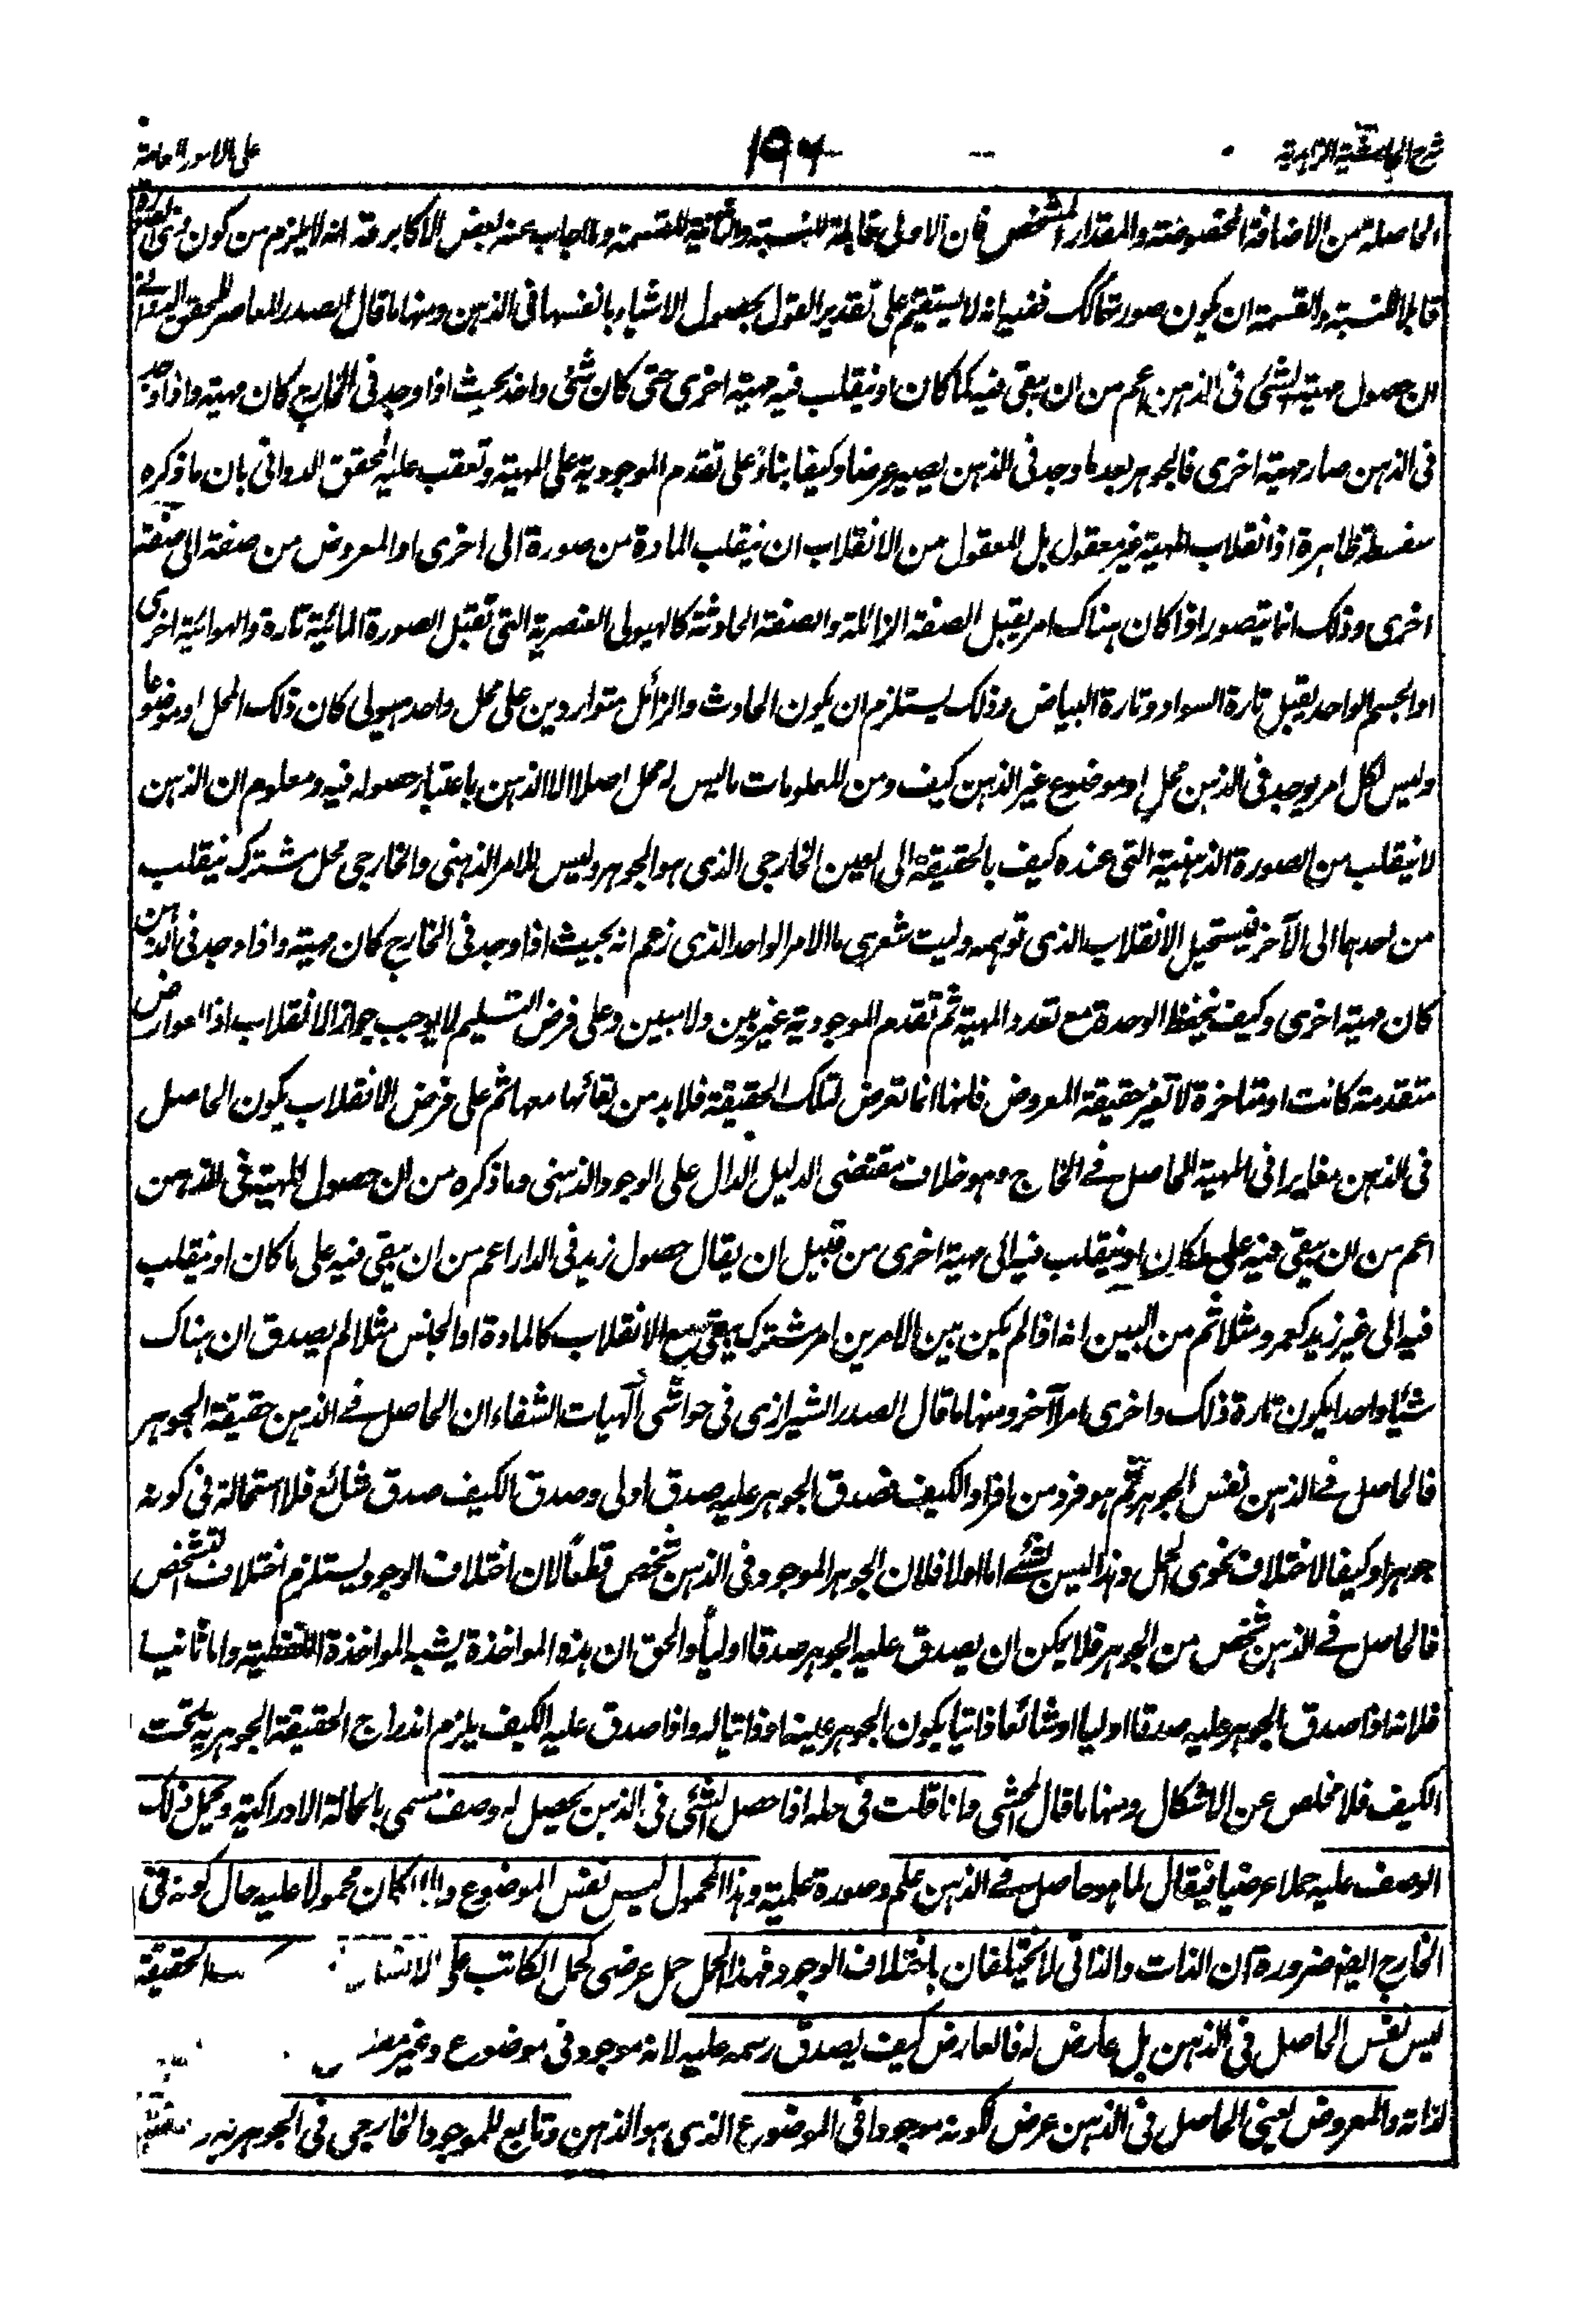 شرح الحاشية الزاهدية ١٩٦ على الامور العامة
الحاصلة من الاضافة المخصوصة والمقدار المشخص فان الاولى قابلة للنسبة والثانية للقسمة وما اجاب عنه بعض الاكابر قد انه لا يلزم من كون
قابلا للنسبة والقسمة ان يكون صورته كذلك ففيه انه لا يستقيم على تقدير القول بحصول الاشياء بانفسها فى الذهن ومنها ما قال الصدر المعاصر للمحقق الدوانى
ان حصول مهية الشئ فى الذهن اعم من ان يبقى فيه كما كان او ينقلب فيه مهية اخرى حتى كان شئ واحد بحيث اذا وجد فى الخارج كان مهية واذا وجد
فى الذهن صار مهية اخرى فالجوهر بعد ما وجد فى الذهن يصير عرضا وكيفا بناء على تقدم الموجودية على المهية وتعقب عليه المحقق الدوانى بان ما ذكره
سفسطة ظاهرة اذ انقلاب المهية غير معقول بل المعقول من الانقلاب ان ينقلب المادة من صورة الى اخرى او المعروض من صفة الى صفة
اخرى وذلك انما يتصور اذا كان هناك امر يقبل الصفة الزائلة والصفة الحادثة كالهيولى العنصرية التى تقبل الصورة المائية تارة والهوائية اخرى
او الجسم الواحد يقبل تارة السواد وتارة البياض وذلك يستلزم ان يكون الحادث والزائل متواردين على محل واحد هيولى كان ذلك المحل او موضوعا
وليس لكل امر يوجد فى الذهن محل او موضوع غير الذهن كيف ومن المعلومات ما ليس له محل اصلا الا الذهن باعتبار حصوله فيه ومعلوم ان الذهن
لا ينقلب من الصورة الذهنية التى عنده كيف بالحقيقة الى العين الخارجى الذى هو الجوهر وليس للامر الذهنى والخارجى محل مشترك ينقلب
من احدهما الى الآخر فيستحيل الانقلاب الذى توهمه وليت شعرى ما الامر الواحد الذى زعم انه بحيث اذا وجد فى الخارج كان مهية واذا وجد فى الذهن
كان مهية اخرى وكيف يحفظ الوحدة مع تعدد المهية ثم تقدم الموجودية غير بين ولا مبين وعلى فرض التسليم لا يوجب جواز الانقلاب اذ العوارض
متقدمة كانت او متاخرة لا تغير حقيقة المعروض فانها انما تعرض لتلك الحقيقة فلا بد من بقائها معها ثم على فرض الانقلاب يكون الحاصل
فى الذهن مغايرا فى المهية للحاصل فى الخارج وهو خلاف مقتضى الدليل الدال على الوجود الذهنى وما ذكره من ان حصول المهية فى الذهن
اعم من ان يبقى فيه على ما كان او ينقلب فيه الى مهية اخرى من قبيل ان يقال حصول زيد فى الدار اعم من ان يبقى فيه على ما كان او ينقلب
فيه الى غير زيد كعمرو مثلا ثم من البين انه اذا لم يكن بين الامرين امر مشترك يبقى مع الانقلاب كالمادة او الجنس مثلا لم يصدق ان هناك
شيئا واحدا يكون تارة ذلك واخرى امرا آخر ومنها ما قال الصدر الشيرازى فى حواشى آلهيات الشفاء ان الحاصل فى الذهن حقيقة الجوهر
فالحاصل فى الذهن نفس الجوهر ثم هو فرد من افراد الكيف فصدق الجوهر عليه صدق اولى وصدق الكيف صدق شائع فلا استحالة فى كونه
جوهرا وكيفا لاختلاف نحوى الحمل وهذا ليس بشئ اما اولا فلان الجوهر الموجود فى الذهن شخص قطعا لان اختلاف الوجود يستلزم اختلاف التشخص
فالحاصل فى الذهن شخص من الجوهر فلا يمكن ان يصدق عليه الجوهر صدقا اوليا والحق ان هذه المواخذة يشبه المواخذة اللفظية واما ثانيا
فلانه اذا صدق الجوهر عليه صدقا اوليا او شائعا ذاتيا يكون الجوهر عينا او ذاتيا له واذا صدق عليه الكيف يلزم اندراج الحقيقة الجوهرية تحت
الكيف فلا مخلص عن الاشكال ومنها ما قال المحشى وانا قلت فى حله اذا حصل الشئ فى الذهن يحصل له وصف مسمى بالحالة الادراكية ويحمل ذلك
الوصف عليه حملا عرضيا فيقال لما هو حاصل فى الذهن علم وصورة علمية وهذا المحمول ليس نفس الموضوع والا لكان محمولا عليه حال كونه فى
الخارج ايضا ضرورة ان الذات والذاتى لا يختلفان باختلاف الوجود فهذا الحمل حمل عرضى كحمل الكاتب على الانسان الحقيقة
ليس نفس الحاصل فى الذهن بل عارض له فالعارض كيف يصدق رسمه عليه لانه موجود فى موضوع وغير
لذاته والمعروض اعنى الحاصل فى الذهن عرض لكونه موجودا فى الموضوع الذى هو الذهن وتابع للموجود الخارجى فى الجوهرية